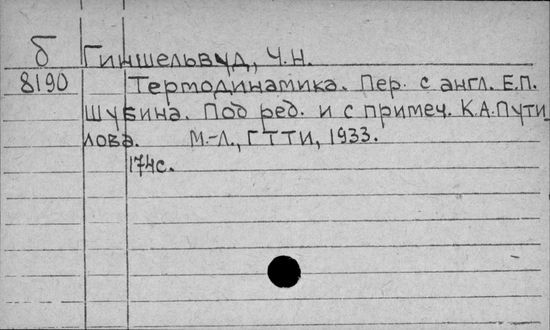 б Гиншельвуд, Ч.Н.
8190 Термодинамика. Пер. с англ. Е.П.
Шубина. Под ред. и с примеч. К.А.Пути
лова. М.-Л., ГТТИ, 1933.
174с.